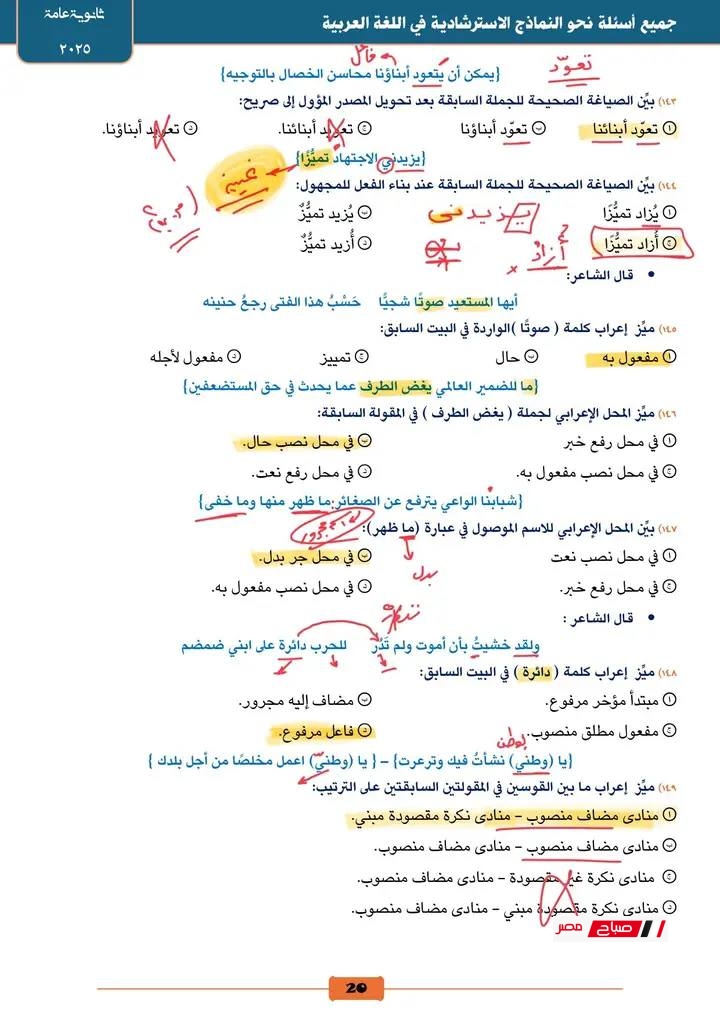 جميع أسئلة نحو النماذج الاسترشادية في اللغة العربية
ثانوية عامة
٢٠٢٥
تعوّد
فاعل
{يمكن أن يتعود أبناؤنا محاسن الخصال بالتوجيه}
١٤٣) بيِّن الصياغة الصحيحة للجملة السابقة بعد تحويل المصدر المؤول إلى صريح:
أ تعوّد أبنائنا ب تعوّد أبناؤنا ج تعويد أبنائنا. د تعويد أبناؤنا.
{يزيدني الاجتهاد تميُّزًا}
تمييز
١٤٤) بيِّن الصياغة الصحيحة للجملة السابقة عند بناء الفعل للمجهول:
أ يُزاد تميُّزًا ب يُزيد تميُّزٌ
يزيدني
ج أُزاد تميُّزًا د أُزيد تميُّزٌ
أُزاد
• قال الشاعر:
أيها المستعيد صوتًا شجيًّا حَسْبُ هذا الفتى رجعُ حنينه
١٤٥) ميِّز إعراب كلمة ( صوتًا )الواردة في البيت السابق:
أ مفعول به ب حال ج تمييز د مفعول لأجله
{ما للضمير العالمي يغض الطرف عما يحدث في حق المستضعفين}
١٤٦) ميِّز المحل الإعرابي لجملة ( يغض الطرف ) في المقولة السابقة:
أ في محل رفع خبر ب في محل نصب حال.
ج في محل نصب مفعول به. د في محل رفع نعت.
{شبابنا الواعي يترفع عن الصغائر: ما ظهر منها وما خفى}
١٤٧) بيِّن المحل الإعرابي للاسم الموصول في عبارة (ما ظهر):
أ في محل نصب نعت ب في محل جر بدل.
بدل
ج في محل رفع خبر. د في محل نصب مفعول به.
• قال الشاعر :
ولقد خشيتُ بأن أموت ولم تَدُر للحرب دائرة على ابني ضمضم
١٤٨) ميِّز إعراب كلمة ( دائرة ) في البيت السابق:
أ مبتدأ مؤخر مرفوع. ب مضاف إليه مجرور.
ج مفعول مطلق منصوب. د فاعل مرفوع.
{يا (وطني) نشأتُ فيك وترعرت} – { يا (وطنيّ) اعمل مخلصًا من أجل بلدك }
١٤٩) ميِّز إعراب ما بين القوسين في المقولتين السابقتين على الترتيب:
أ منادى مضاف منصوب – منادى نكرة مقصودة مبني.
ب منادى مضاف منصوب – منادى مضاف منصوب.
ج منادى نكرة غير مقصودة – منادى مضاف منصوب.
د منادى نكرة مقصودة مبني – منادى مضاف منصوب.
صباح مصر
20